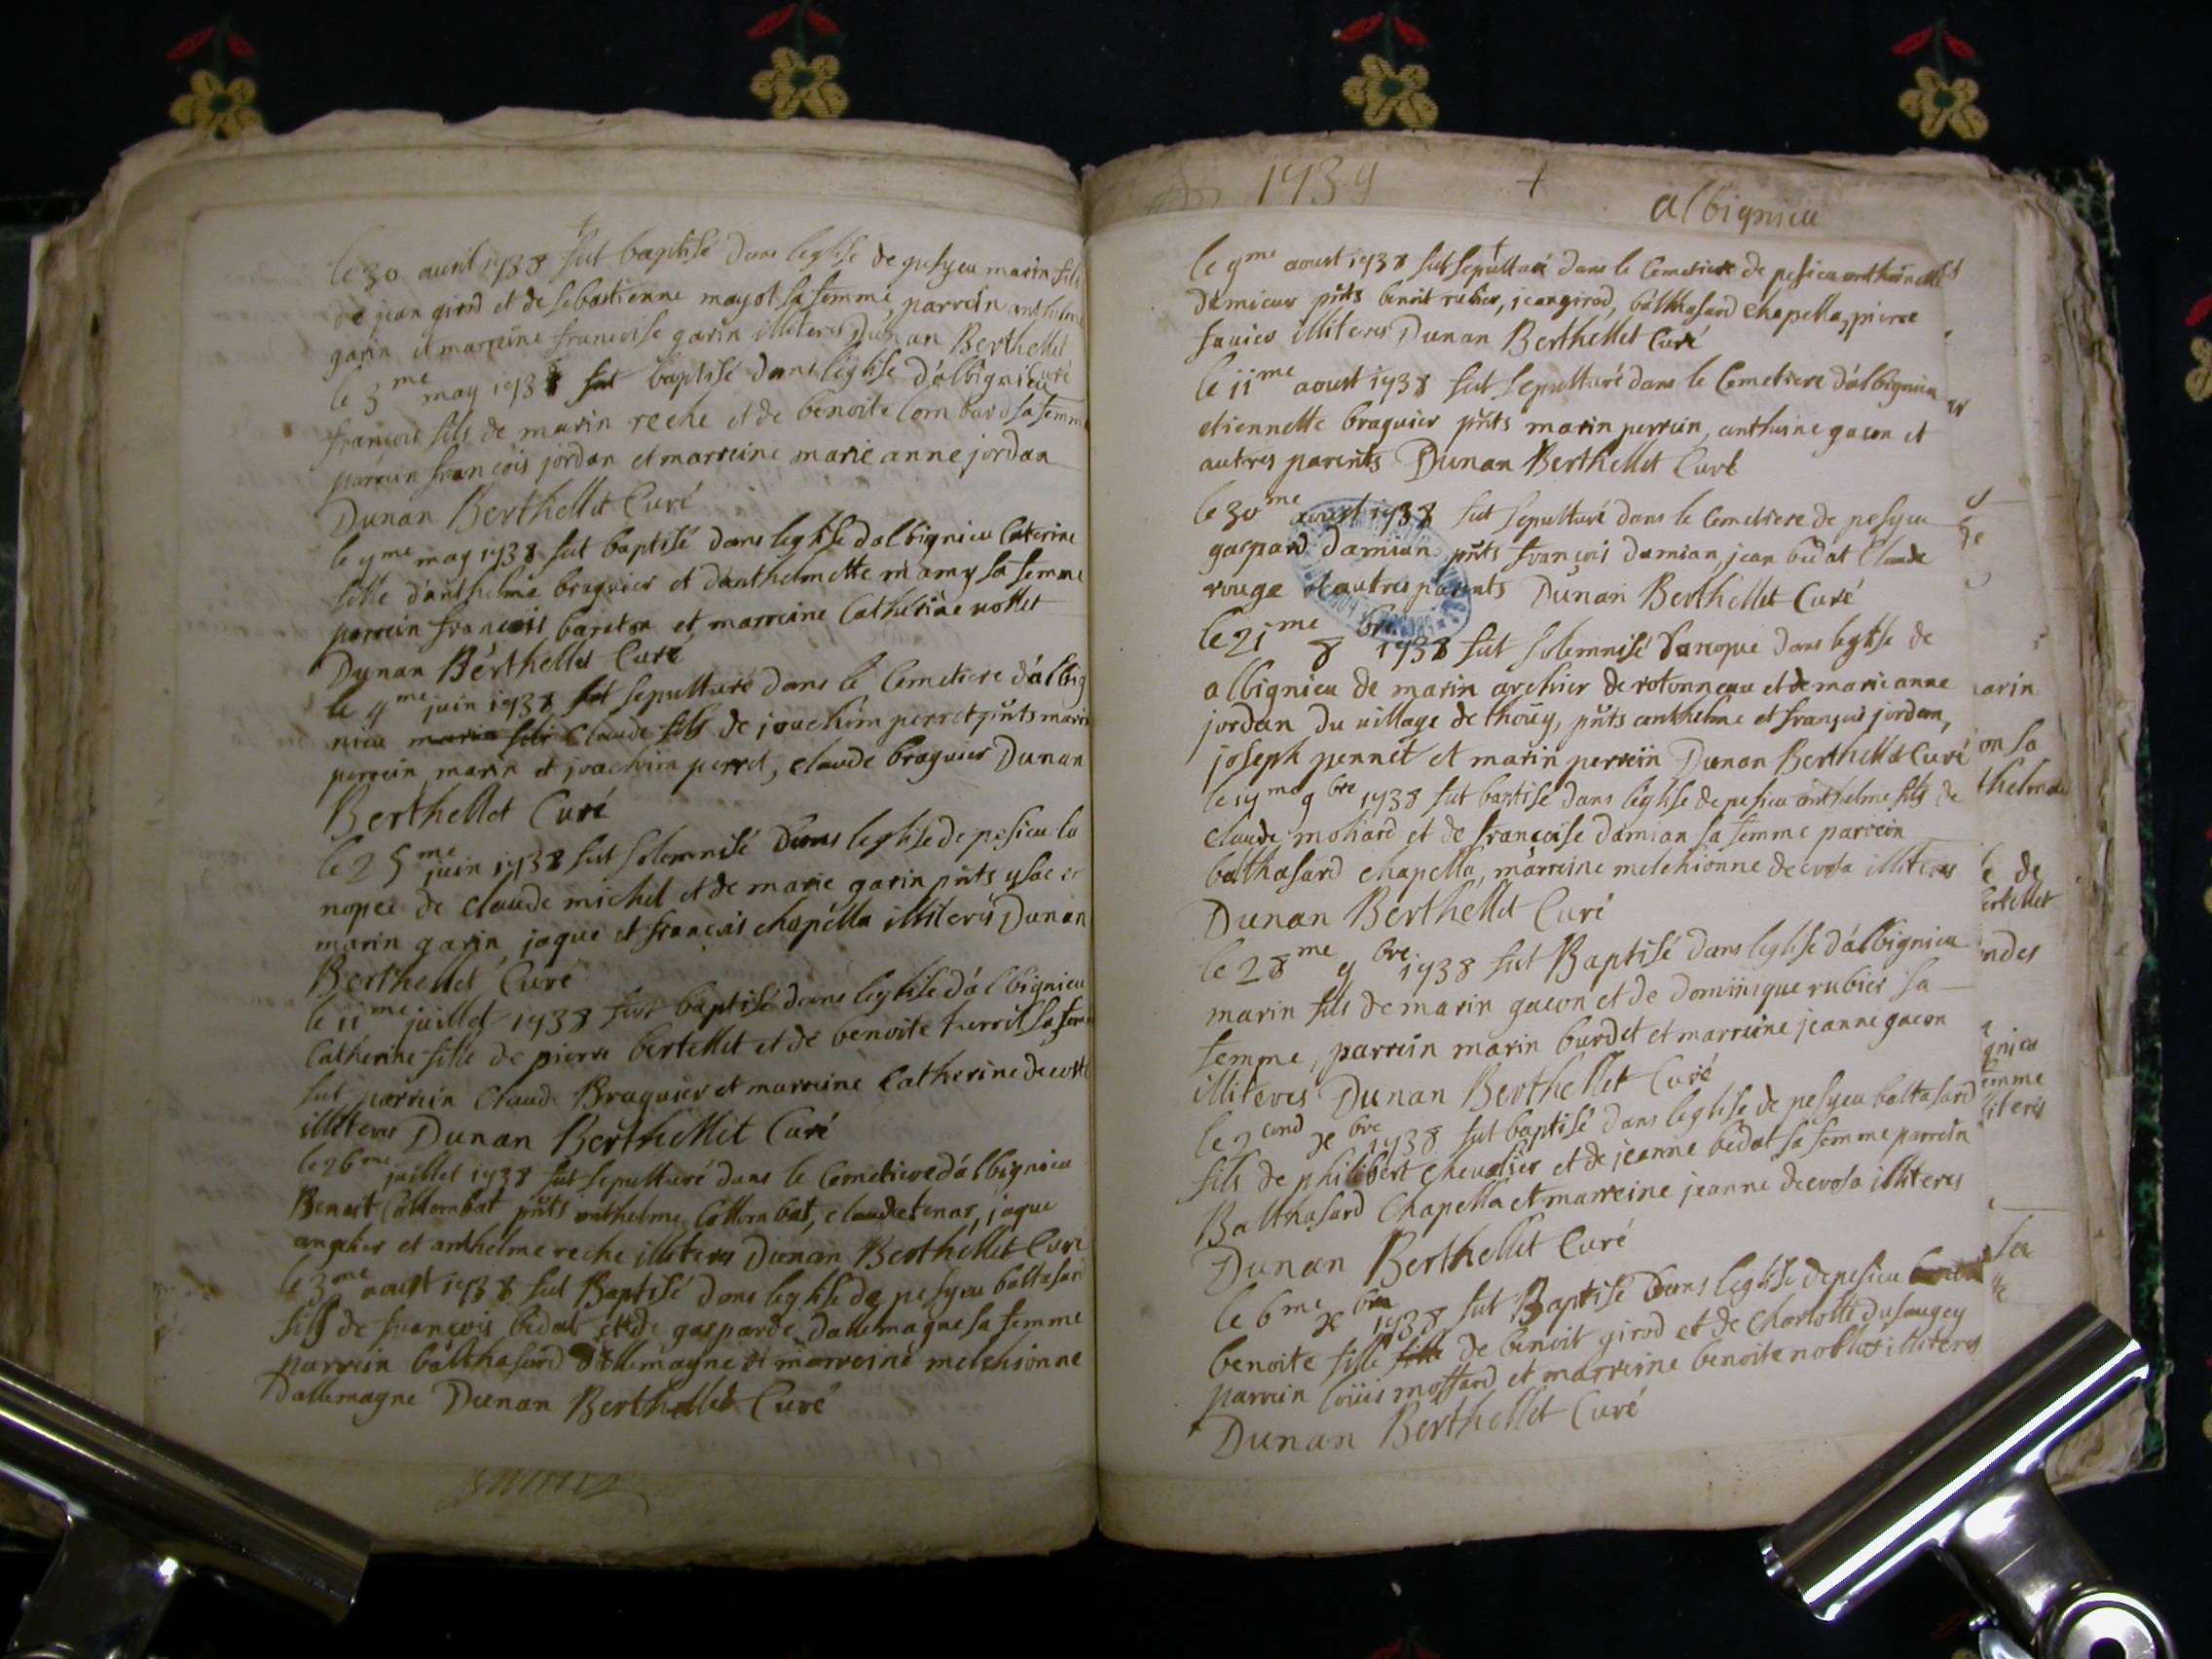 le 30 auril 1738 fut baptisé dans leglise de pesyeu marin fils
de jean girod et de sebastienne mayot sa femme, parrein anthelme
garin et marreine francoise garin illiteres Dunan Berthellet
Curé
le 3me may 1738 fut baptisé dans léglise d'albignieu
francois fils de marin reche et de benoite Combard sa femme
parrein francois jordan et marreine marie anne jordan
Dunan Berthellet Curé
le 9me may 1738 fut baptisé dans leglise dalbignieu Caterine
fille d'anthelme braguier et d'anthelmette mamy sa femme
parrein francois bareton et marreine Catherine nollet
Dunan Berthellet Curé
le 4me juin 1738 fut sepulturé dans le Cemetiere d'albig
nieu marin fils Claude fils de joachim perret pnts marin
perrein marin et joachim perret, claude braguier Dunan
Berthellet Curé
le 25me juin 1738 fut solemnisé Dans leglise de pesieu la
nopce de claude michel et de marie garin pnts ysac et
marin garin jaque et francois chapella illiteris Dunan
Berthellet Curé
le 11me juillet 1738 fut baptisé dans leglise d'albignieu
Catherine fille de pierre bertellet et de benoite sa femme
fut parrein Claude Braguier et marreine Catherine
illiteres Dunan Berthellet Curé
le 26me juillet 1738 fut sepulturé dans le Cemetiere d'albignieu
Benoit Collombat pnts anthelme Collombat, claude tenar, jaque
angelier et anthelme reche illiteres Dunan Berthellet Curé
le 3me aoust 1738 fut Baptisé dans leglise de pesyeu baltasard
fils de francois bidat et de gasparde dallemagne sa femme
parrein balthasard dallemagne et marreine melchionne
Dallemagne Dunan Berthellet Curé
1739 +
albignieu
le 9me aoust 1738 fut sepulturé dans le Cemetiere de pesieu anthoinette
Damieur pnts benoit rubier, jean girod, balthasard Chapella, pierre
fauier illiteres Dunan Berthellet Curé
le 11me aoust 1738 fut sepulturé dans le Cemetiere d'albignieu
etiennette braguier pnts marin perrein, anthoine gacon et
autres parents Dunan Berthellet Curé
le 30me aoust 1738 fut sepulturé dans le Cemetiere de pesyeu
gaspard damian pnts francois damian, jean bidat Claude
rouge et autres parents Dunan Berthellet Curé
le 21me 8bre 1738 fut solemnisé la nopce dans leglise de
albignieu de marin archier de rotonneau et de marie anne
jordan du village de thoüy, pnts anthelme et françois jordan,
joseph pennet et marin perrein Dunan Berthellet Curé
le 17me 9bre 1738 fut baptisé dans léglise de pesieu anthelme fils de
Claude moliard et de françoise damian sa femme parrein
balthasard chapella, marreine melchionne illiteres
Dunan Berthellet Curé
le 28me 9bre 1738 fut Baptisé dans leglise d'albignieu
marin fils de marin gacon et de dominique rubier sa
femme, parrein marin burdet et marreine jeanne gacon
illiteres Dunan Berthellet Curé
le 2cond xbre 1738 fut baptisé dans leglise de pesyeu baltasard
fils de philibert Chevalier et de jeanne bidat sa femme parrein
Balthasard Chapella et marreine jeanne illiteres
Dunan Berthellet Curé
le 6me xbre 1738 fut Baptisé dans leglise de pesieu
benoite fille fille de benoit girod et de Charlotte dusaugey
parrein loüis moffard et marreine benoite illiteres
Dunan Berthellet Curé
arin
on sa
thelme
de
ertellet
ndes
gnieu
emme
literis
sa